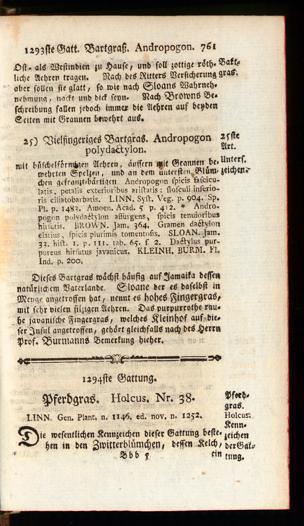 1293ste Gatt. Bartgraß. Andropogon. 761
Ost- als Westindien zu Hause, und soll zottige röth- Bakt.
liche Aehren tragen. Nach des Ritters Versicherung gras.
aber sollen sie glatt, so wie nach Sloans Wahrneh-
nehmung, nackt und dick seyn. Nach Browns Be-
schreibung fallen jedoch immer die Aehren auf beyden
Seiten mit Grannen bewehrt aus.
25) Vielfingeriges Bartgras. Andropogon 25ste
polydactylon. Art.
mit büschelförmigen Aehren, äussern mit Grannen be- Unters.
wehrten Spelzen, und an dem untersten Blüm- zeichen.
chen gefranzt-bärtigen Andropogon spicis fascicu-
latis, petalis exterioribus aristatis: flosculi inferio-
ris ciliatobarbatis. LINN. Syst. Veg. p. 904. Sp.
Pl. p. 1483. Amoen. Acad. 5 p. 412. * Andro-
pogon polydactylon assurgens, spicis tenuioribus
hirsutis. BROWN. Jam, 364. Gramen dactylon
elatius, spicis plurimis tomentosis, SLOAN. Jam.
33. hist. 1. p. 111. tab. 65. f. 2. Dactylus pur-
pureus hirsutus javanicus. KLEINH, BURM. Fl.
Ind. p. 200.
Dieses Bartgras wächst häufig auf Jamaika dessen
natürlichem Vaterlande. Sloane der es daselbst in
Menge angetroffen hat, nennt es hohes Fingergras,
mit sehr vielen filzigen Aehren. Das purpurrothe rau-
he javanische Fingergras, welches Kleinhof auf die-
ser Insul angetroffen, gehört gleichfalls nach des Herrn
Prof. Burmanns Bemerkung hieher.
1294ste Gattung.
Pferdgras. Holcus. Nr. 38. Pferd-
gras.
LINN. Gen. Plant. n. 1146, ed. nov. n. 1252. Holcus.
Kenn-
Die wesentlichen Kennzeichen dieser Gattung beste- zeichen
hen in den Zwitterblümchen, dessen Kelch, der Gat-
Bbb 5 ein tung.